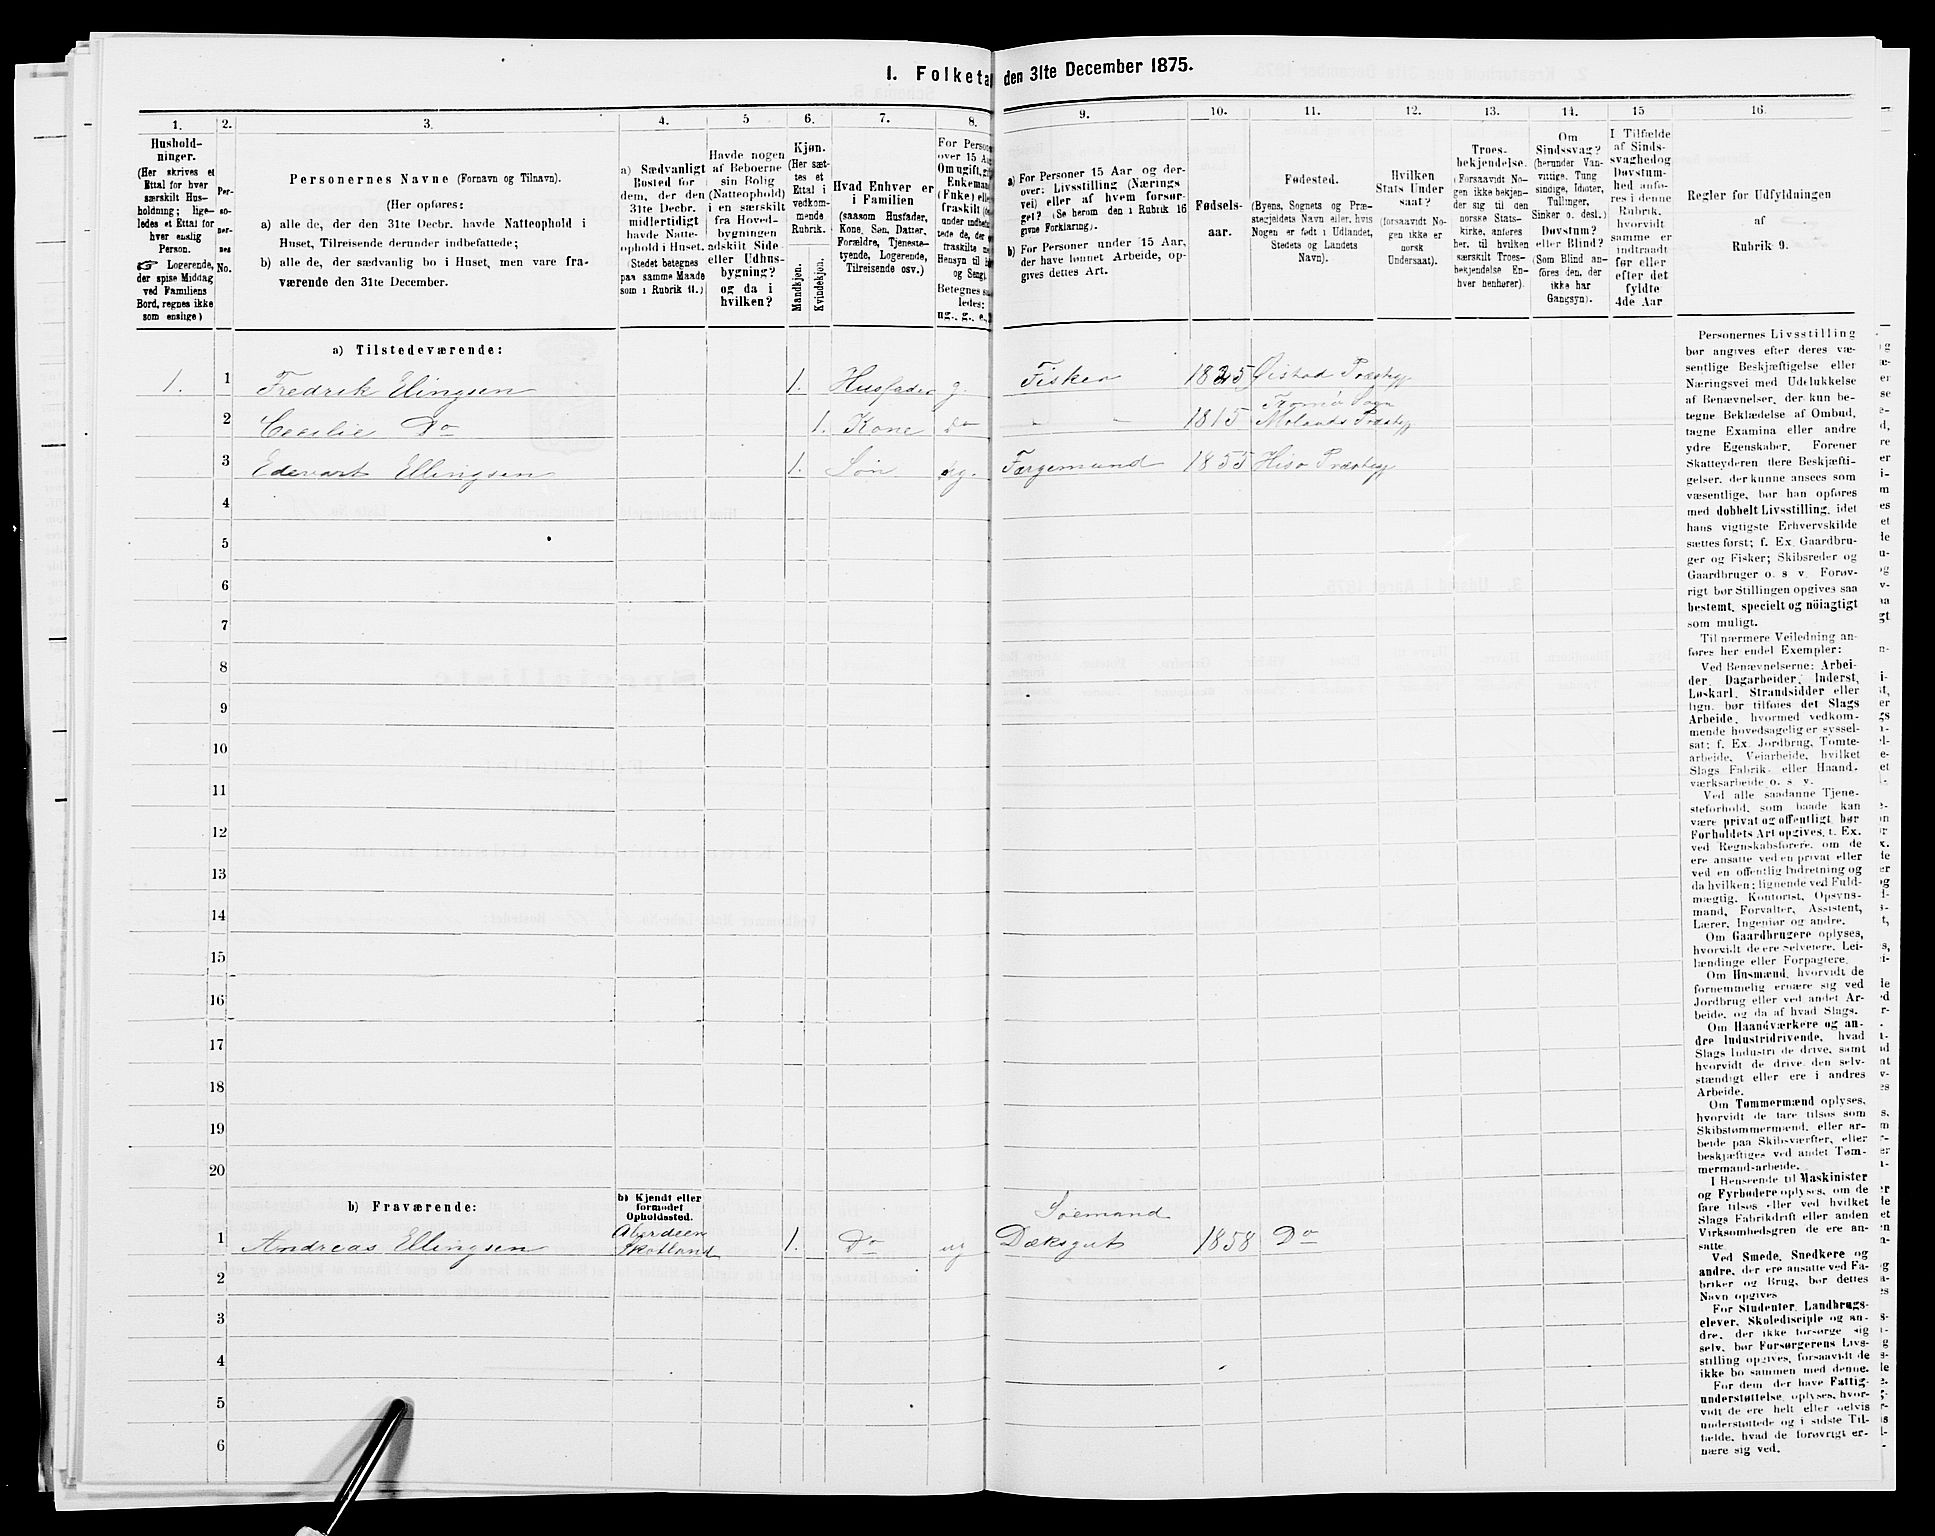 I. Folketæ den 31te December 1875.
1. 2. 3. 4. 5 6. 7. 8. 9. 10. 11. 12. 13. 14. 15 16.
Hushold-
ninger.
(Her skrives et
Ettal for hver
særskilt Hus-
holdning; lige-
ledes et Ettal for
hver enslig
Person.
☞ Logerende,
der spise Middag
ved Familiens
Bord, regnes ikke
som enslige)
Per-
so-
ner-
nes
No.
Personernes Navne (Fornavn og Tilnavn).
(Her opføres:
a) alle de, der den 31te Decbr. havde Natteophold i
Huset, Tilreisende derunder indbefattede;
b) alle de, der sædvanlig bo i Huset, men vare fra-
værende den 31te December.
a) Sædvanligt
Bosted for
dem, der den
31te Decbr.
midlertidigt
havde Natte-
ophold i Huset.
(Stedet betegnes
paa samme Maade
som i Rubrik 11.)
Havde nogen
af Beboerne
sin Bolig
(Natteophold)
i en særskilt
fra Hoved-
bygningen
adskilt Side
eller Udhus-
bygning?
og da i
hvilken?
Kjøn.
(Her sæt-
tes et
Ettal i
vedkom-
mende
Rubrik.
Mandkjøn.
Kvindekjøn.
Hvad Enhver er
i Familien
(saasom Husfader,
Kone, Søn, Datter,
Forældre, Tjeneste-
tyende, Logerende,
Tilreisende osv.)
For Person
over 15 Aa
Om ugift, gi
Enkeman
(Enke) elle
fraskilt
under indbe
tede de, der
fraskilte
Hensyn til
og Seng
Betegnes
ledes:
ug., g., e.,
a) For Personer 15 Aar og der-
over: Livsstilling (Nærings
vei) eller af hvem forsør-
get? (Se herom den i Rubrik 16
givne Forklaring).
b) For Personer under 15 Aar,
der have lønnet Arbeide, op-
gives dettes Art.
Fødsels-
aar.
Fødested.
(Byens, Sognets og Præ-
stegjeldets Navn eller, hvis
Nogen er født i Udlandet,
Stedets og Landets
Navn).
Hvilken
Stats Under
saat?
(forsaavidt No-
gen ikke er
norsk
Undersaat).
Troes-
bekjendelse.
(Forsaavidt No-
gen ikke bekjen-
der sig til den
norske Stats-
kirke, anføres
her, til hvilken
særskilt Troes-
bekjendelse En-
hver henhører).
Om
Sindssvag?
(herunder Van-
vittige, Tung
sindige, Idioter,
Tullinger,
Sinker o. desl.)
Døvstum?
eller Blind?
(Som Blind an-
føres den, der
ikke har
Gangsyn).
I Tilfælde
af Sinds-
svaghed og
Døvstum-
hed anfø-
res i denne
Rubrik,
hvorvidt
samme er
indtraadt
før eller
efter det
fyldte
4de Aar
Regler for Udfyldningen
af
Rubrik 9.
a) Tilstedeværende:
1. 1 Fredrik Elingsen 1. Husfader g. Fisker 1825 Øistad Præstegj
Tromø Sogn
2 Cecilie Do 1. Kone Do " " 1815 Molands Præstegj
3 Edevart Ellingsen 1. Søn ug. Færgemand 1855 Hisø Præstegj
4
5
6
7
8
9
10
11
12
13
14
15
16
17
18
19
20
b) Fraværende:
b) Kjendt eller
formodet
Opholdssted.
Aberdeen Søemand
1 Andreas Ellingsen Skotland 1. Do ug Dæksgut 1858 Do
2
3
4
5
6
Personernes Livsstilling
bør angives efter deres væ-
sentlige Beskjæftigelse eller
Næringsvei med Udelukkelse
af Benævnelser, der kun be-
tegne Beklædelse af Ombud,
tagne Examina eller andre
ydre Egenskaber. Forener
Skatteyderen flere Beskjæfti-
gelser, der kunne ansees som
væsentlige, bør han opføres
med dobbelt Livsstilling, idet
hans vigtigste Erhvervskilde
sættes først; f. Ex. Gaardbru-
ger og Fisker; Skibsreder og
Gaardbruger o. s v. Forøv-
rigt bør Stillingen opgives saa
bestemt, specielt og nöiagtigt
som muligt.
Til nærmere Veiledning an-
føres her endel Exempler:
Ved Benævnelserne: Arbei-
der, Dagarbeider, Inderst,
Løskarl, Strandsidder eller
lign. bør tilføies det Slags
Arbeide, hvormed vedkom-
mende hovedsagelig er syssel-
sat; f. Ex. Jordbrug, Tomte-
arbeide, Veiarbeide, hvilket
Slags Fabrik- eller Haand-
værksarbeide o. s. v.
Ved alle saadanne Tjene-
steforhold, som baade kan
være privat og offentligt, bør
Forholdets Art opgives, t. Ex.
ved Regnskabsførere, om de
ere ansatte ved en privat eller
ved en offentlig Indretning og
da hvilken; lignende ved Fuld-
mægtig, Kontorist, Opsyns-
mand, Forvalter, Assistent,
Lærer, Ingeniør og andre.
Om Gaardbrugere oplyses,
hvorvidt de ere Selveiere, Lei-
lændinge eller Forpagtere.
Om Husmænd, hvorvidt de
fornemmelig ernære sig ved
Jordbrug eller ved andet Ar-
beide, og da af hvad Slags.
Om Haandværkere og an-
dre Industridrivende, hvad
Slags Industri de drive, samt
hvorvidt de drive den selv-
stændigt eller ere i andres
Arbeide.
Om Tømmermænd oplyses,
hvorvidt de fare tilsøs som
Skibstømmermænd, eller ar-
beide paa Skibsværfter, eller
beskjæftiges ved andet Tøm-
mermandsarbeide.
I Henseende til Maskinister
og Fyrbødere oplyses, om de
fare tilsøs eller ved hvilket
Slags Fabrikdrift eller anden
Virksomhedsgren de ere an-
satte.
Ved Smede, Snedkere og
andre, der ere ansatte ved Fa-
briker og Brug, bør dettes
Navn opgives
For Studenter, Landbrugs-
elever, Skoledisciple og an-
dre, der ikke forsørge sig
selv, bør Forsørgerens Livs-
stilling opgives, forsaavidt de
ikke bo sammen med denne.
For dem, der have Fattig-
understøttelse, oplyses, hvor-
vidt de ere helt eller delvis
understøttede og i sidste Til-
fælde, hvad de forøvrigt er-
nære sig ved.